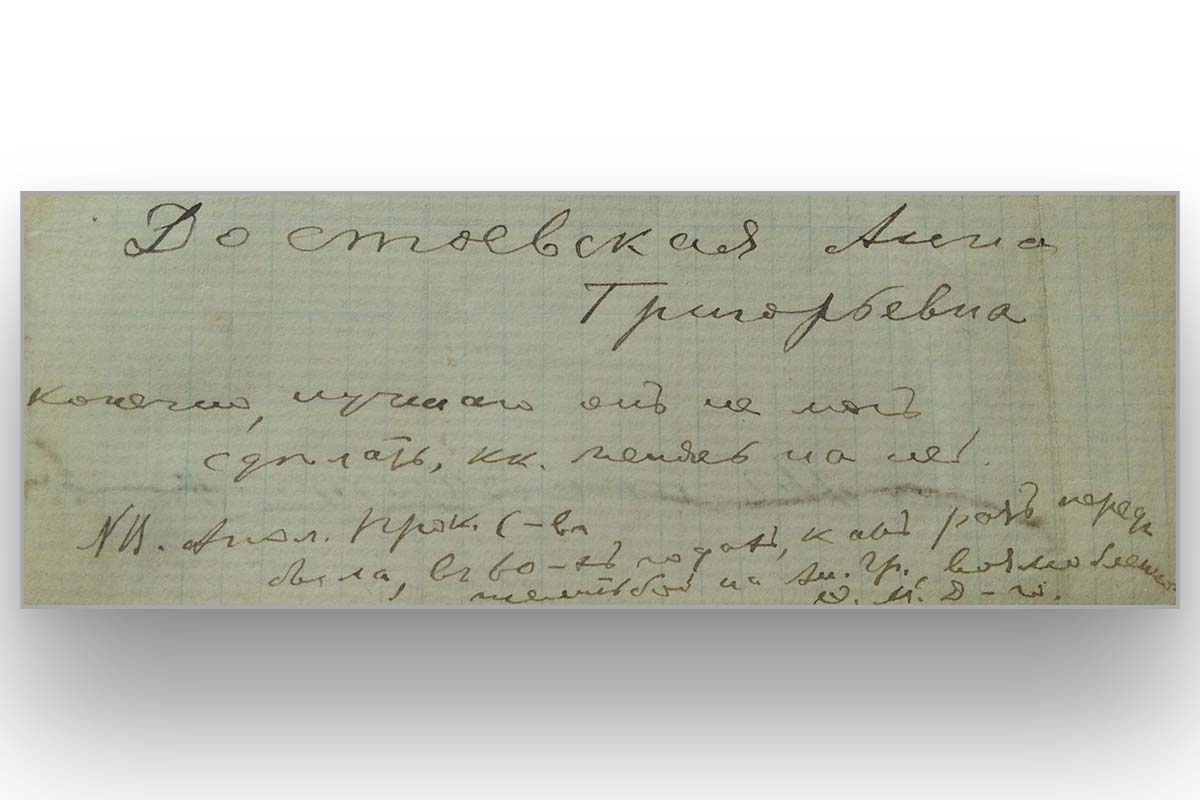 Достоевская Анна
Григорьевна
конечно, лучшаго онъ не могъ
сдѣлать, кк. женясь на ней.
NB. Апол. Прок. С–ва
была, въ 60-хъ годахъ, какъ разъ передъ
женитьбой на Ан. Гр., возлюбленно.
Ѳ. М. Д–го.